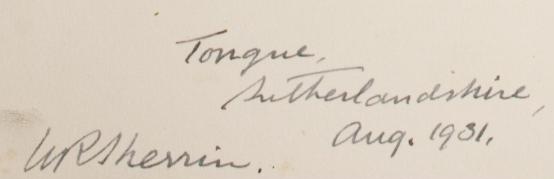 Tongue,
Sutherlandshire,
Aug. 1931.
W R Sherrin.